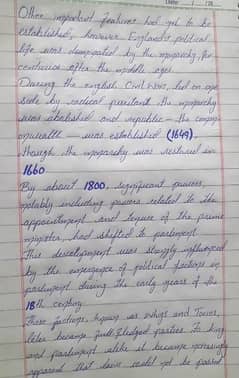 Date: / /20
Other important features had yet to be
established, however England's political
life was dominated by the monarchy, for
centuries after the middle ages.
During the english Civil Wars, led on one
side by radical puritans the monarchy
was abolished and republic - the common
wealth - was established (1649).
though the monarchy was restored in
1660
By about 1800, significant powers,
notably including powers related to the
appointment and tenure of the prime
minister, had shifted to parliament.
This development was strongly influenced
by the emergence of political factions in
parliament during the early years of the
18th century.
These factions, known as whigs and Tories,
later became full fledged parties. To king
and parliament alike it became increasingly
apparent that laws could not be passed